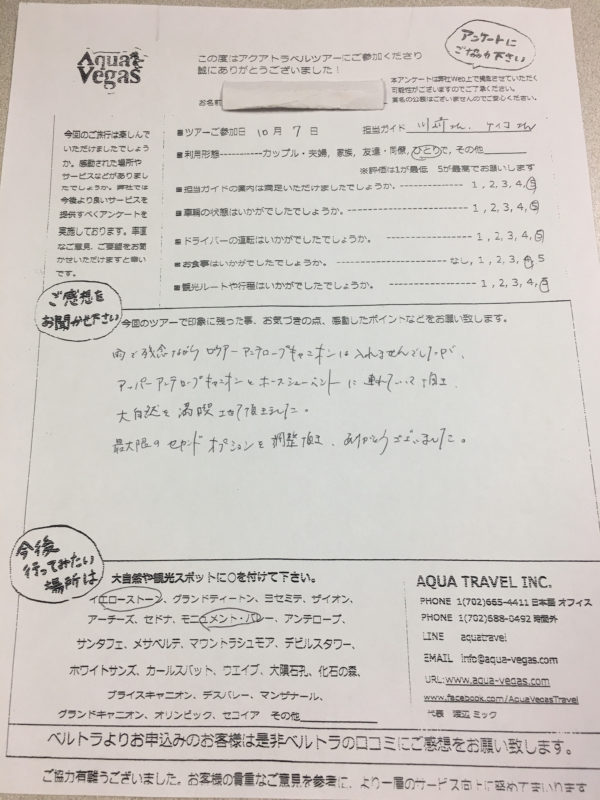 Aqua Vegas
この度はアクアトラベルツアーにご参加くださり
誠にありがとうございました！
アンケートに
ご協力下さい
本アンケートは弊社Web上で掲載させていただく
可能性がございますのでご了承ください。
署名の公表はございませんのでご安心ください。
お名前
今回のご旅行は楽しんで
いただけましたでしょう
か。感動された場所や
サービスなどがありまし
たでしょうか。弊社では
今後より良いサービスを
提供すべくアンケートを
実施しております。率直
なご意見、ご要望をお聞
かせいただけますと幸い
です。
■ツアーご参加日 10月 7日 担当ガイド 川前さん、ケイコさん
■利用形態-----------カップル・夫婦, 家族, 友達・同僚, ひとりで, その他
※評価は1が最低、5が最高でお願いします
■担当ガイドの案内は満足いただけましたでしょうか。 ---------- 1, 2, 3, 4, 5
■車輌の状態はいかがでしたでしょうか。 ---------- 1, 2, 3, 4, 5
■ドライバーの運転はいかがでしたでしょうか。 ---------- 1, 2, 3, 4, 5
■お食事はいかがでしたでしょうか。 ---------- なし, 1, 2, 3, 4, 5
■観光ルートや行程はいかがでしたでしょうか。 ---------- 1, 2, 3, 4, 5
ご感想を
お聞かせ下さい
今回のツアーで印象に残った事、お気づきの点、感動したポイントなどをお願い致します。
雨で残念ながら ロウアーアンテロープキャニオンは入れませんでしたが、
アッパーアンテロープキャニオンとホースシューベントに連れていって頂き、
大自然を満喫させて頂きました。
最大限のセカンドオプションを調整頂き、ありがとうございました。
今後
行ってみたい
場所は
大自然や観光スポットに○を付けて下さい。
イエローストーン、グランドティートン、ヨセミテ、ザイオン、
アーチーズ、セドナ、モニュメント・バレー、アンテロープ、
サンタフェ、メサベルテ、マウントラシュモア、デビルスタワー、
ホワイトサンズ、カールスバット、ウエイブ、大隕石孔、化石の森、
ブライスキャニオン、デスバレー、マンザナール、
グランドキャニオン、オリンピック、セコイア その他
AQUA TRAVEL INC.
PHONE 1(702)665-4411 日本語 オフィス
PHONE 1(702)688-0492 時間外
LINE aquatravel
EMAIL info@aqua-vegas.com
URL:www.aqua-vegas.com
www.facebook.com/AquaVegasTravel
代表 渡辺 ミック
ベルトラよりお申込みのお客様は是非ベルトラの口コミにご感想をお願い致します。
ご協力有難うございました。お客様の貴重なご意見を参考に、より一層のサービス向上に努めてまいります